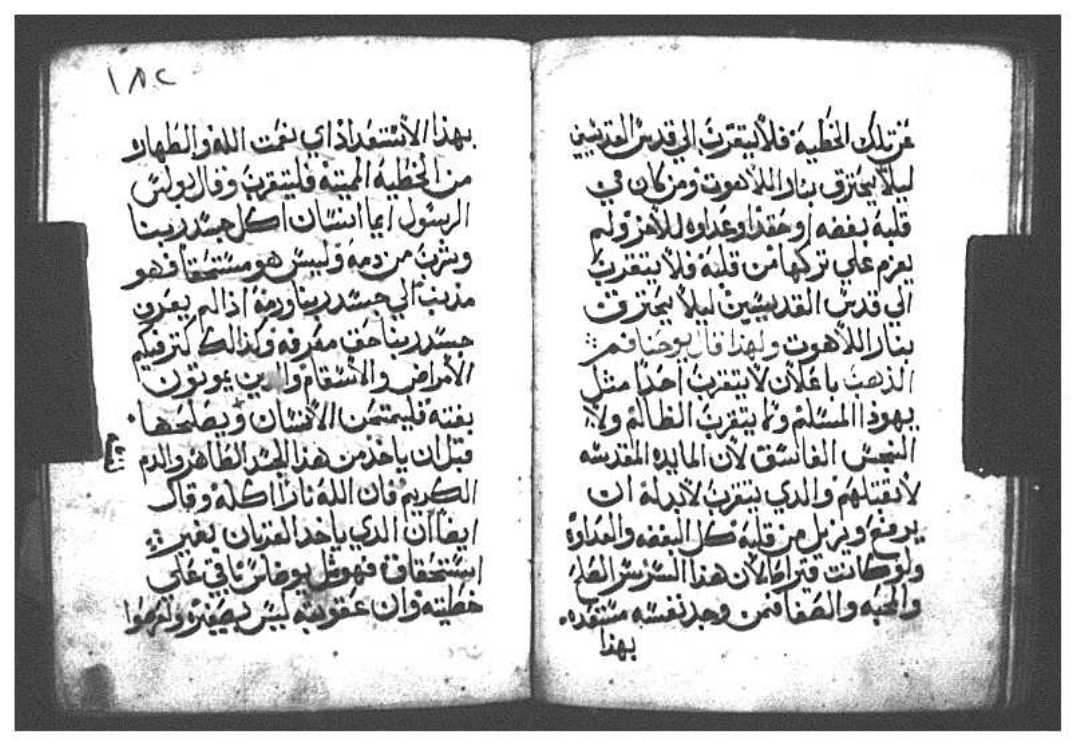 عن تلك الخطية فلا يتقرب الي قدس القديسين
ليلا يحترق بنار اللاهوت ومن كان في
قلبه بغضه او حقد او عداوه للاخر ولم
يعزم علي تركها من قلبه فلا يتقرب
الي قدس القديسين ليلا يحترق
بنار اللاهوت ولهذا قال يوحنا فم
الذهب باعلان لا يتقرب احدا مثل
يهودا المسلم ولا يتقرب الظالم ولا
النجس الفاسق لان المايده المقدسه
لا تقبلهم والدي يتقرب لابد له ان
يرفع ويزيل من قلبه كل البغضه والعداوة
ولو كانت قيراطا لان هذا السر سر الصلح
والمحبه والصفا فمن وجد نفسه مستعده
بهذا
١٨٢
بهذا الاستعداد اي نعمت الله والطهاره
من الخطية المميتة فليتقرب وقال بولس
الرسول ايما انسان اكل جسد ربنا
وشرب من دمه وليس هو مستحقا فهو
مذنب الي جسد ربنا ودمه اذ لم يعرف
جسد ربنا حق معرفه وكذالك كتر فيكم
الأمراض والأسقام والدين يموتون
بغتة فليمتحن الأنسان ويصلحها
قبل ان ياخد من هذا الجسد الطاهر والدم
الكريم فان الله نارا اكله وقال
ايضا ان الذي ياخد القربان بغير
استحقاق فهو مثل يوضاس باقي علي
خطيته وان عقوبته ليس بصغيره